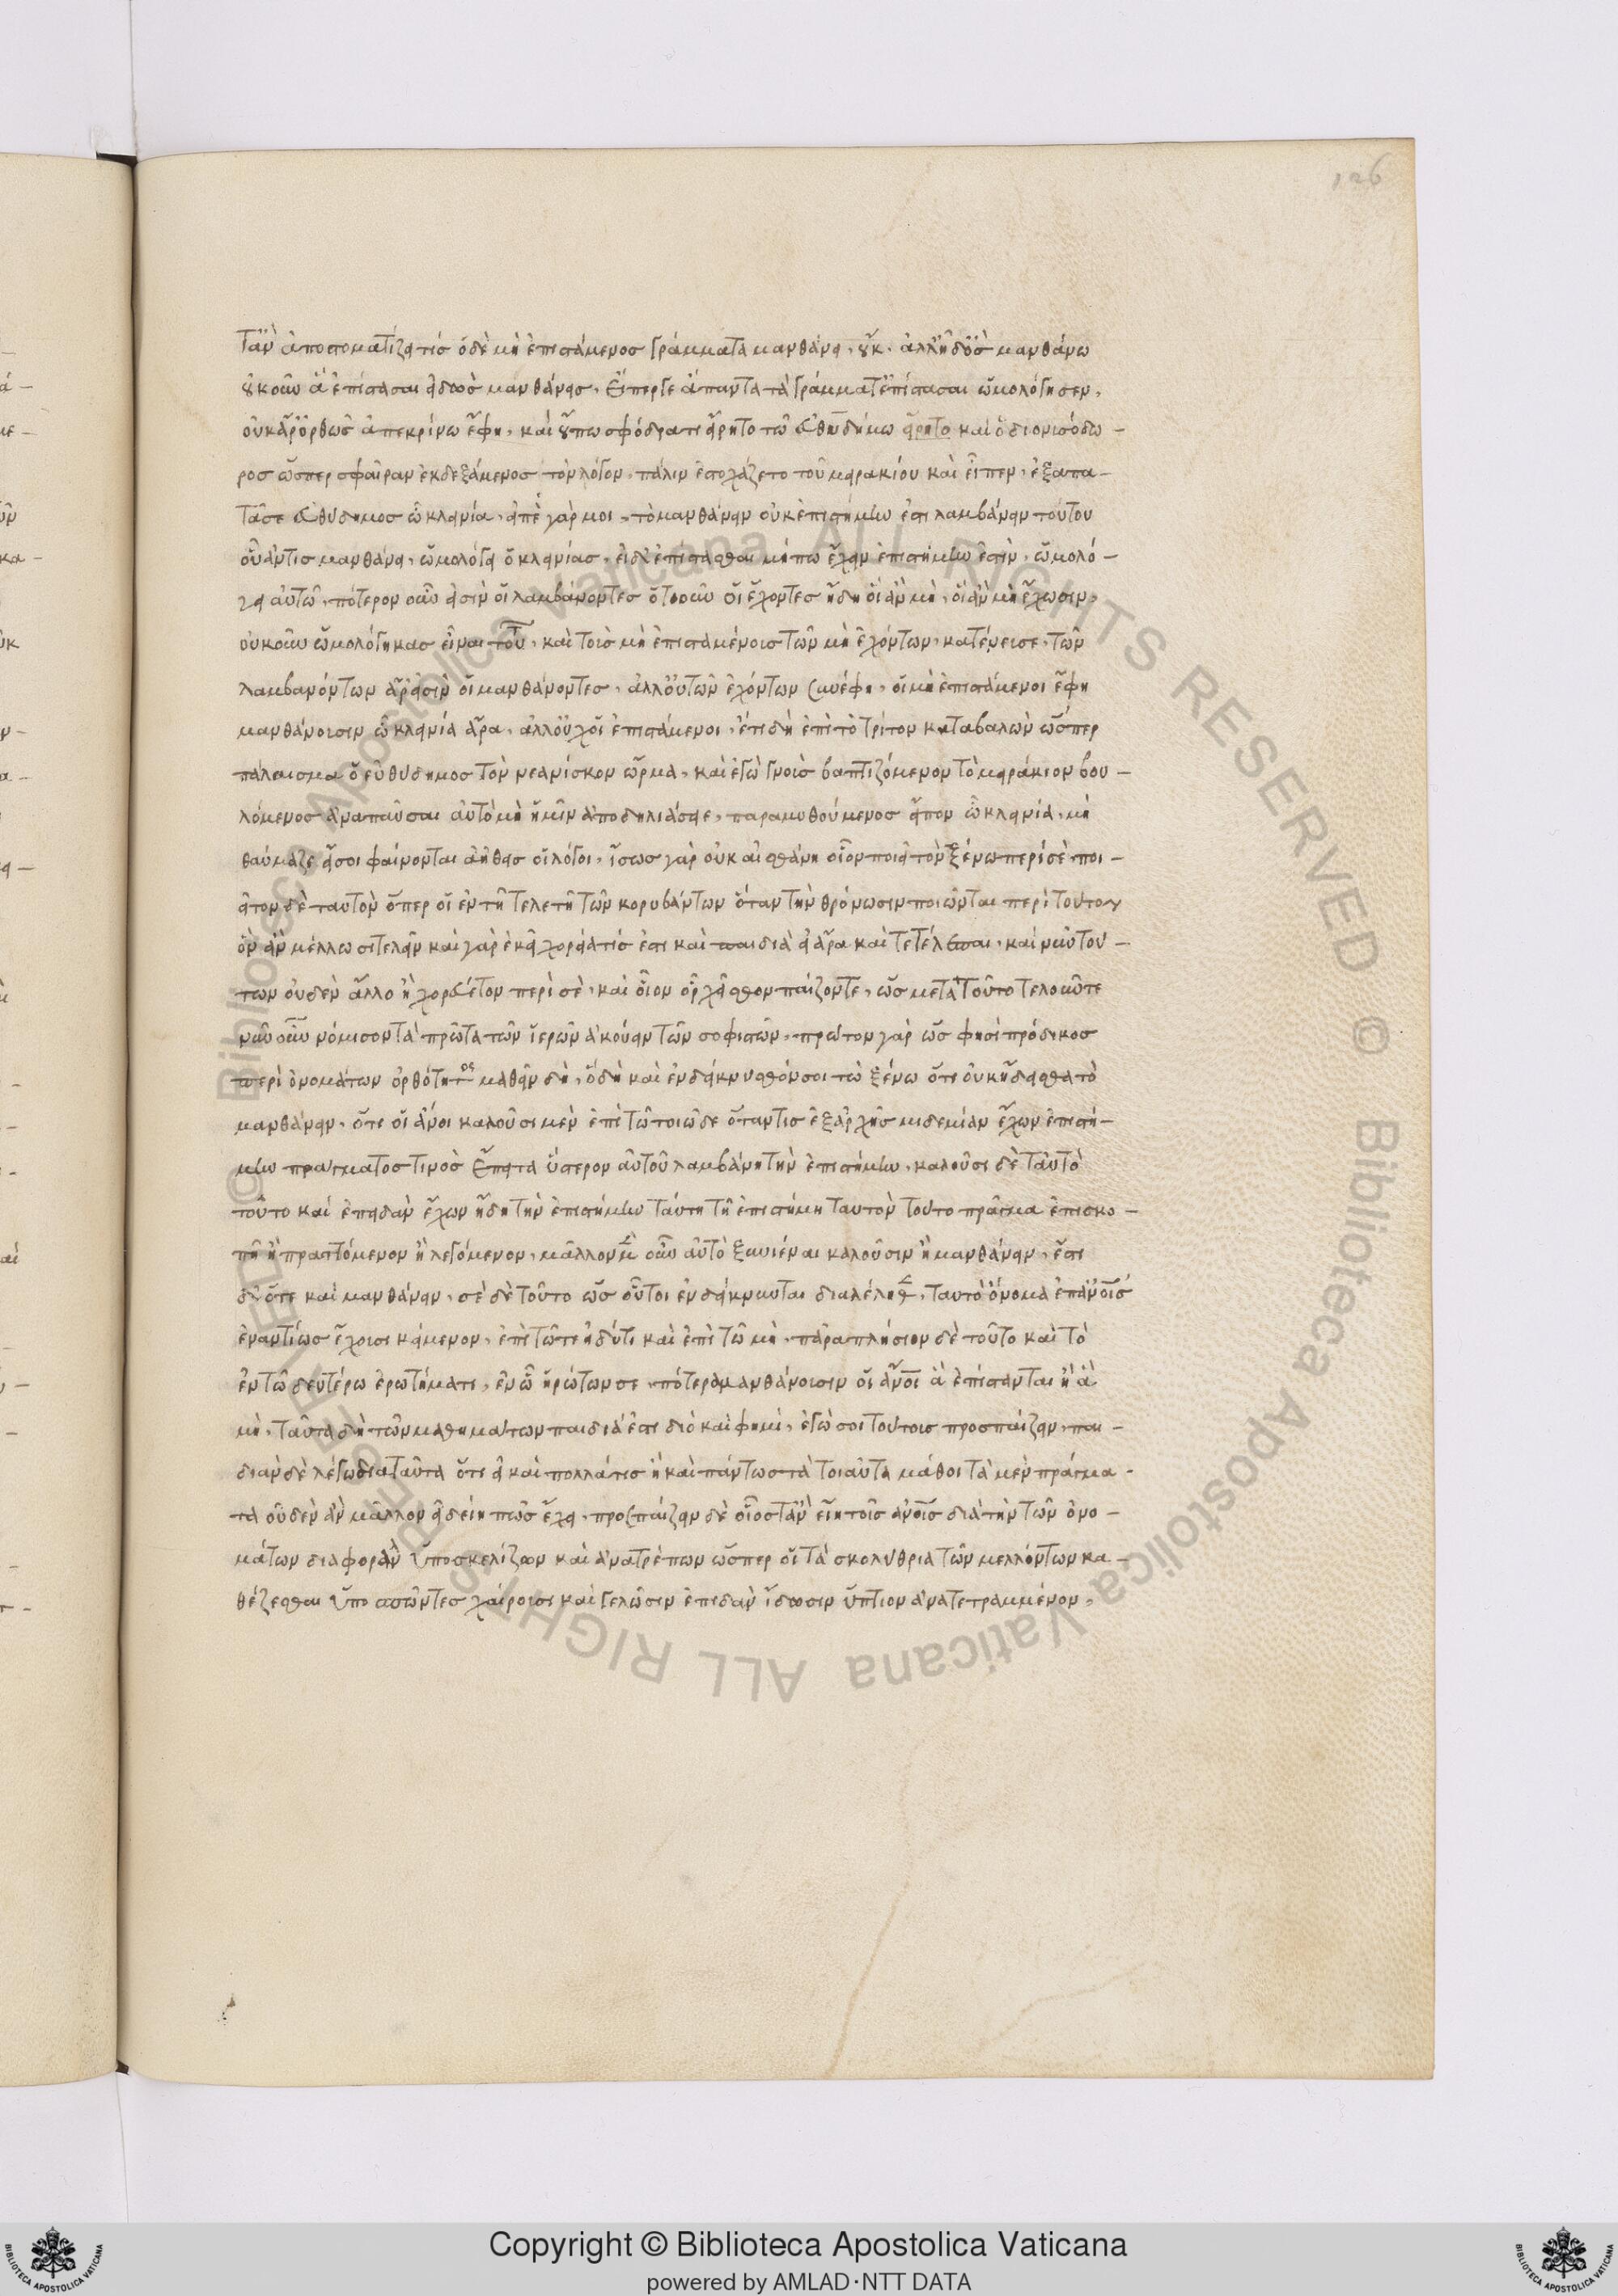 Τἂν ἀποστοματίζει τίς ὁ δὲ μὴ ἐπιστάμενος γράμματα μανθάνει, οὔκ, ἀλλ' ἢ δ' ὃς μανθάνω
οὐκοῦν ἃ ἐπίστασαι ἠ δ' ὸς μανθάνεις, εἴπερ γε ἅπαντα τὰ γράμματ' ἐπίστασαι ὡμολόγησεν,
οὐκ ἄρ' ὀρθῶς ἀπεκρίνω ἔφη, καὶ οὔπω σφόδρα τι εἴρητο τῶ εὐθηδήμω εἴρητο καὶ ὁ διονισόδω-
ρος ὥσπερ σφαῖραν ἐκδεξάμενος τὸν λόγον, πάλιν ἐστοχάζετο τοῦ μειρακίου καὶ εἶπεν, ἐξαπα-
τᾶ σε εὐθύδημος ὦ κλεινία, εἰπὲ γάρ μοι, τὸ μανθάνειν οὐκ ἐπιστήμην ἐστι λαμβάνειν τούτου
οὗ ἄν τις μανθάνει, ὡμολόγει ὁ κλεινίας, εἰ δ' ἐπίστασθαι μήπω ἔχειν ἐπιστήμην ἐστὶν, ὡμολό-
γει αὐτῶ, πότερον οὖν εἰσὶν οἱ λαμβάνοντες ὁτιοοῦν οἱ ἔχοντες ἤδη οἳ ἂν μὴ, οἳ ἂν μὴ ἔχωσιν,
οὐκοῦν ὡμολόγηκας εἶναι τού, καὶ τοὶς μὴ ἐπισταμένοις τῶν μὴ ἐχόντων, κατένεισε, τῶν
λαμβανόντων ἄρ' εἰσὶν οἱ μανθάνοντες, ἀλλ' οὐ τῶν ἐχόντων συνέφη, οἱ μὴ ἐπιστάμενοι ἔφη
μανθάνοισιν ὦ κλεινία ἄρα, ἀλλ' οὐχ οἱ ἐπιστάμενοι, ἔτι δὴ ἐπὶ τὸ τρίτον καταβαλὼν ὥσπερ
πάλαισμα ὁ εὐθύδημος τὸν νεανίσκον ὥρμα, καὶ ἐγὼ γνοὶς βαπτιζόμενον τὸ μειράκιον βου-
λόμενος ἀναπαῦσαι αὐτὸ μὴ ἡμῖν ἀποδηλιάσειε, παραμυθούμενος εἶπον ὦ κλεινία, μὴ
θαύμαζε εἴ σοι φαίνονται ἀήθεις οἱ λόγοι, ἴσως γὰρ οὐκ αἰσθάνη οἷον ποιεῖτον ξένω περί σὲ ποι-
εῖτον δὲ ταυτὸν ὅπερ οἱ ἐν τῆ τελετῆ τῶν κορυβάντων ὅταν τὴν θρόνωσιν ποιῶνται περὶ τουτον
ὃν ἂν μέλλωσι τελεῖν καὶ γὰρ ἐκεῖ χορεία τίς ἐστι καὶ παιδιὰ εἰ ἄρα καὶ τετέλεσαι, καὶ νῦν τού-
των οὐδὲν ἄλλο ἢ χορεύετον περὶ σὲ, καὶ οἷον ὀρχεῖσθον παίζοντε, ὡς μετὰ τοῦτο τελοῦντε
νῦν οὖν νόμισον τὰ πρῶτα τῶν ἱερῶν ἀκούειν τῶν σοφιστῶν, πρώτον γὰρ ὥς φησὶ πρόδικος
περὶ ὀνομάτων ὀρθότητος μαθεῖν δὴ, ὃ δὴ καὶ ἐνδείκνυσθόν σοι τὼ ξένω ὅτι οὐκ ἤδεισθα τὸ
μανθάνειν, ὅτι οἱ ἄνοι καλοῦσι μὲν ἐπὶ τῶ τοιῶδε ὅταν τις ἐξ ἀρχῆς μιδεμίαν ἔχων ἐπιστή-
μην πράγματος τινὸς ἔπειτα ὕστερον αὐτοῦ λαμβάνη τὴν ἐπιστήμην, καλοῦσι δὲ ταὐτὸ
τοῦτο καὶ ἐπειδὰν ἔχων ἤδη τὴν ἐπιστήμην ταύτη τῆ ἐπιστήμη ταυτὸν τουτο πράγμα ἐπισκο-
πῆ ἢ πραττόμενον ἢ λεγόμενον, μᾶλλον μὲν οὖν αὐτὸ ξυνιέναι καλοῦσιν ἢ μανθάνειν, ἔστι
δ' ὅτε καὶ μανθάνειν, σὲ δὲ τοῦτο ὡς οὗτοι ἐνδείκνυνται διαλέληθε, ταυτὸ ὄνομα ἐπ' ἀνοις
ἐναντίως ἔχοισι κείμενον, ἐπὶ τῶ τε ἠδότι καὶ ἐπὶ τῶ μὴ, παραπλήσιον δὲ τοῦτο καὶ τὸ
ἐν τῶ δευτέρω ἐρωτήματι, ἐν ὧ ἠρώτων σε, πότερα μανθάνοισιν οἱ ἄνοι ἃ ἐπίστανται ἢ ἃ
μὴ, ταῦτα δὴ τῶν μαθημάτων παιδιὰ ἐστι διὸ καὶ φημὶ, ἐγώ σοι τούτοις προσπαίζειν, παι-
διὰν δὲ λέγω διὰ ταῦτα ὅτι εἰ καὶ πολλά τις ἢ καὶ πάντως τὰ τοιαῦτα μάθοι τὰ μὲν πράγμα-
τα οὐδὲν ἂν μᾶλλον εἰδείη πῶς ἔχει, προσπαίζειν δὲ οἷος τ' ἂν εἴη τοῖς ἀνοις διὰ τὴν τῶν ὀνο-
μάτων διαφορὰν ὑποσκελίζων καὶ ἀνατρέπων ὥσπερ οἱ τὰ σκολύθρια τῶν μελλόντων κα-
θέζεσθαι ὑποσπῶντες χαίροισι καὶ γελῶσιν ἐπιδὰν ἴδωσιν ὕπτιον ἀνατετραμμένον,
126
Copyright © Biblioteca Apostolica Vaticana
powered by AMLAD·NTT DATA